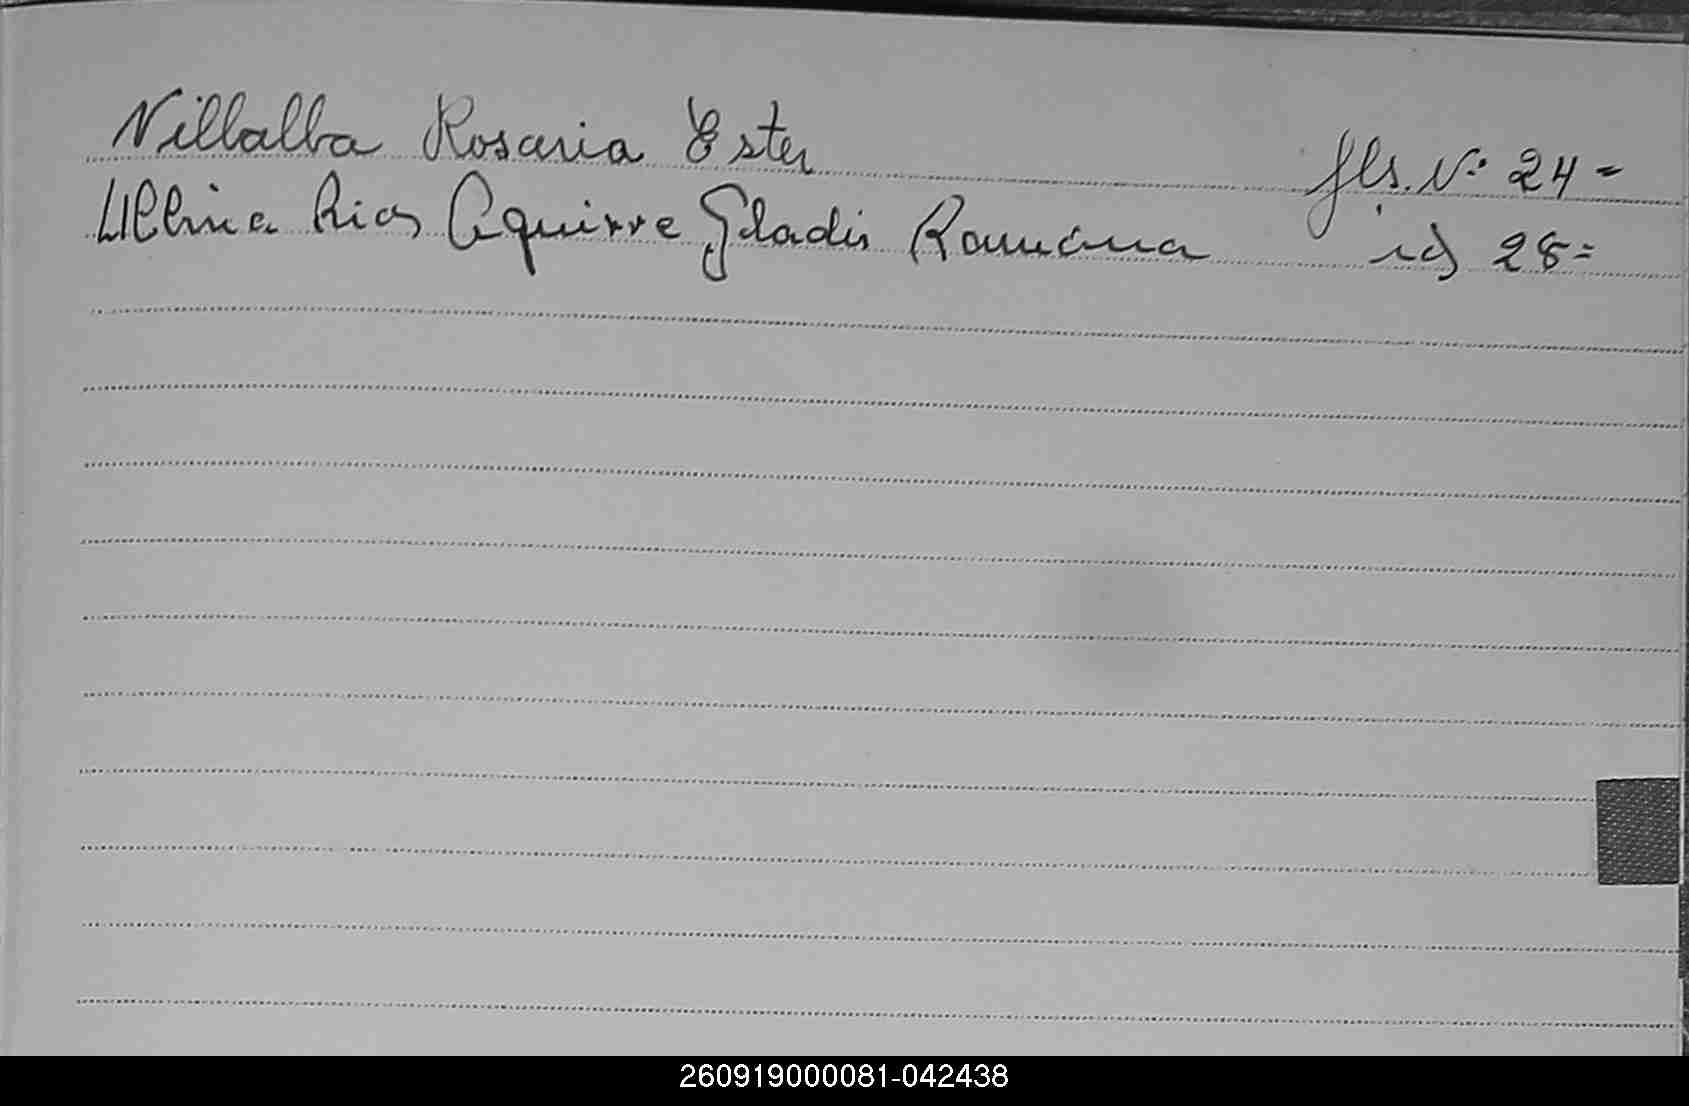 Villalba Rosaria Ester fls. Nº 24=
Rios Aguirre Gladis Ramona id 28=
260919000081-042438